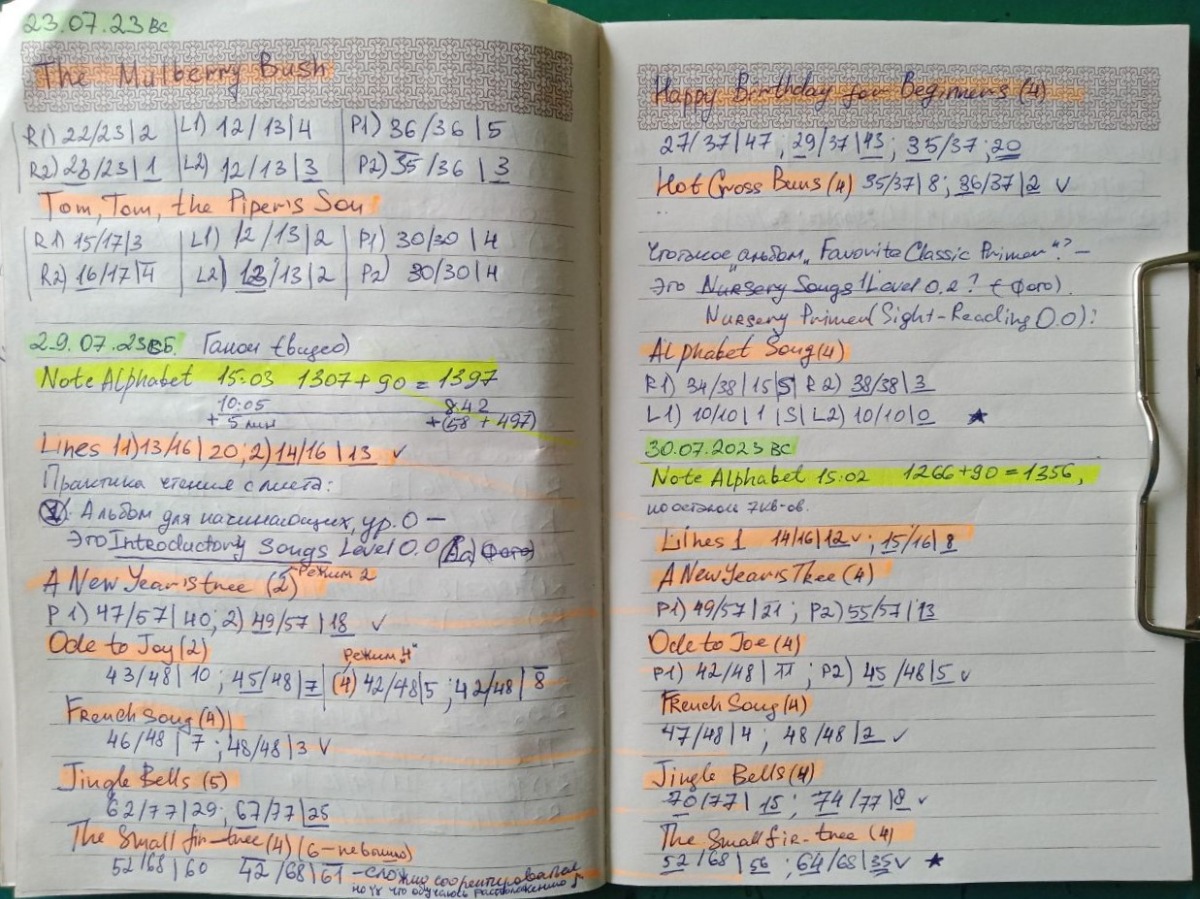 23.07.23 вс
The Mulberry Bush
R1) 22/23|2 L1) 12/13|4 P1) 36/36|5
R2) 23/23|1 L2) 12/13|3 P2) 35/36|3
Tom, Tom, the Piper's Son
R1) 15/17|3 L1) 12/13|2 P1) 30/30|4
R2) 16/17|4 L2) 13/13|2 P2) 30/30|4
29.07.23 сб. Ганон (видео)
Note Alphabet 15:03 1307+90=1397
10:05 8:42
+5 мин +(58 + 497)
Lines 1 1) 13/16|20; 2) 14/16|13 ✓
Практика чтения с листа:
1. Альбом для начинающих, ур. 0 –
Это Introductory Songs Level 0.0 (Aa) (фото)
A New Year's tree (2) Режим 2
P1) 47/57|40; 2) 49/57|18 ✓
Ode to Joy (2) режим "4"
43/48|10; 45/48|7 (4) 42/48|5; 42/48|8
French Song (4)
46/48|7; 48/48|3 ✓
Jingle Bells (5)
62/77|29; 67/77|25
The Small fir-tree (4) (6-)
52/68|60 42/68|61 – сложно сориентироваться,
но уж что обучаюсь расположению
Happy Birthday for Beginners (4)
27/37|47; 29/37|43; 35/37;20
Hot Cross Buns (4) 35/37|8; 36/37|2 ✓
Что такое альбом "Favorite Classic Primer"? –
Это Nursery Songs 1 Level 0.2? + (фото)
Nursery Primer (Sight-Reading 0.0):
Alphabet Song (4)
R1) 34/38|15|S| R2) 38/38|3
L1) 10/10|1 |S| L2) 10/10|0 ★
30.07.2023 вс
Note Alphabet 15:02 1266+90=1356,
Lines 1 14/16|12 ✓; 15/16|8
A New Year's Tree (4)
P1) 49/57|21; P2) 55/57|13
Ode to Joe (4)
P1) 42/48|11; P2) 45/48|5 ✓
French Song (4)
47/48|4; 48/48|2 ✓
Jingle Bells (4)
70/77|15; 74/77|8 ✓
The Small fir-tree (4)
52/68|56; 64/68|35 ✓ ★